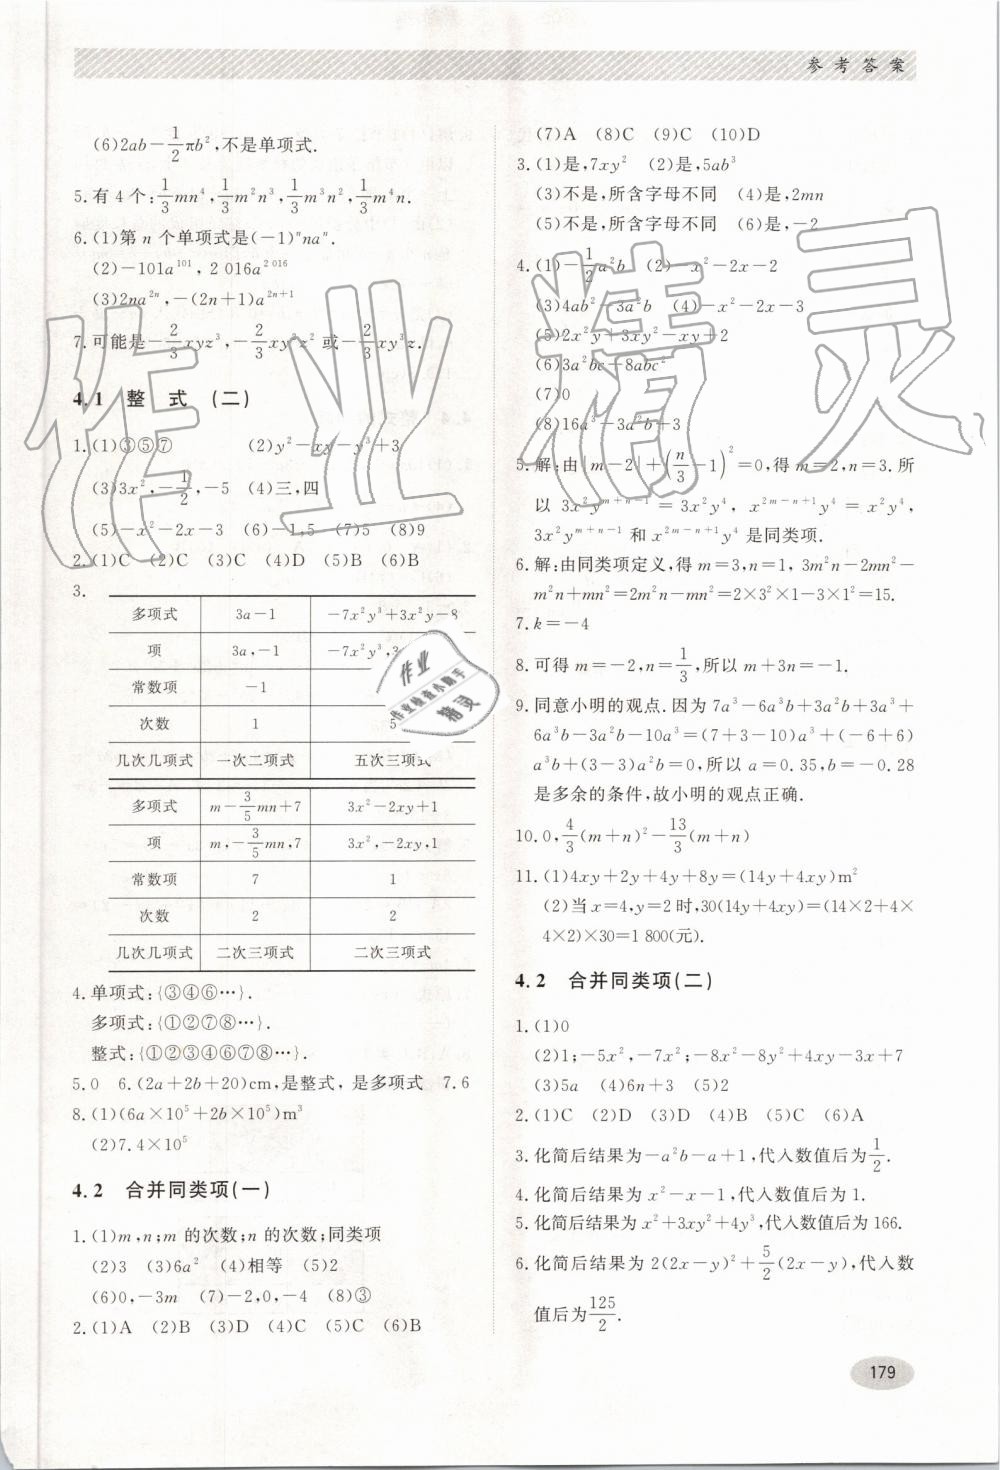 参考答案
(6)2ab-\frac{1}{2}πb²,不是单项式.
5.有4个:\frac{1}{3}mn⁴,\frac{1}{3}m²n³,\frac{1}{3}m³n²,\frac{1}{3}m⁴n.
6.(1)第n个单项式是(-1)ⁿnaⁿ.
(2)-101a¹⁰¹,2 016a²⁰¹⁶
(3)2na²ⁿ,-(2n+1)a²ⁿ⁺¹
7.可能是-\frac{2}{3}xyz³,-\frac{2}{3}xy²z²或-\frac{2}{3}xy³z.
4.1 整 式 (二)
1.(1)③⑤⑦ (2)y²-xy-y³+3
(3)3x²,-\frac{1}{2},-5 (4)三,四
(5)-x²-2x-3 (6)-1,5 (7)5 (8)9
2.(1)C (2)C (3)C (4)D (5)B (6)B
3.
多项式 3a-1 -7x²y³+3x²y-8
项 3a,-1 -7x²y³,3
常数项 -1
次数 1 5
几次几项式 一次二项式 五次三项式
多项式 m-\frac{3}{5}mn+7 3x²-2xy+1
项 m,-\frac{3}{5}mn,7 3x²,-2xy,1
常数项 7 1
次数 2 2
几次几项式 二次三项式 二次三项式
4.单项式:{③④⑥…}.
多项式:{①②⑦⑧…}.
整式:{①②③④⑥⑦⑧…}.
5.0 6.(2a+2b+20)cm,是整式,是多项式 7.6
8.(1)(6a×10⁵+2b×10⁵)m³
(2)7.4×10⁵
4.2 合并同类项(一)
1.(1)m,n;m的次数;n的次数;同类项
(2)3 (3)6a² (4)相等 (5)2
(6)0,-3m (7)-2,0,-4 (8)③
2.(1)A (2)B (3)D (4)C (5)C (6)B
(7)A (8)C (9)C (10)D
3.(1)是,7xy² (2)是,5ab³
(3)不是,所含字母不同 (4)是,2mn
(5)不是,所含字母不同 (6)是,-2
4.(1)-\frac{1}{2}a²b (2)-x²-2x-2
(3)4ab²-3a²b (4)-x²-2x-3
(5)2x²y+3xy²-xy+2
(6)3a²bc+8abc²
(7)0
(8)16a³-3a²b+3
5.解:由|m-2|+(\frac{n}{3}-1)²=0,得m=2,n=3.所
以 3x²yᵐ⁺ⁿ⁻¹=3x²y⁴, x²ᵐ⁻ⁿ⁺¹y⁴=x²y⁴,
3x²yᵐ⁺ⁿ⁻¹ 和 x²ᵐ⁻ⁿ⁺¹y⁴ 是同类项.
6.解:由同类项定义,得m=3,n=1, 3m²n-2mn²-
m²n+mn²=2m²n-mn²=2×3²×1-3×1²=15.
7.k=-4
8.可得m=-2,n=\frac{1}{3},所以m+3n=-1.
9.同意小明的观点.因为7a³-6a³b+3a²b+3a³+
6a³b-3a²b-10a³=(7+3-10)a³+(-6+6)
a³b+(3-3)a²b=0,所以a=0.35,b=-0.28
是多余的条件,故小明的观点正确.
10.0,\frac{4}{3}(m+n)²-\frac{13}{3}(m+n)
11.(1)4xy+2y+4y+8y=(14y+4xy)m²
(2)当x=4,y=2时,30(14y+4xy)=(14×2+4×
4×2)×30=1 800(元).
4.2 合并同类项(二)
1.(1)0
(2)1;-5x²,-7x²;-8x²-8y²+4x+3x+7
(3)5a (4)6n+3 (5)2
2.(1)C (2)D (3)D (4)B (5)C (6)A
3.化简后结果为-a²b-a+1,代入数值后为\frac{1}{2}.
4.化简后结果为x²-x-1,代入数值后为1.
5.化简后结果为x²+3xy²+4y³,代入数值后为166.
6.化简后结果为2(2x-y)²+\frac{5}{2}(2x-y),代入数
值后为\frac{125}{2}.
179
作业精灵
作业
作业检查小助手
精灵